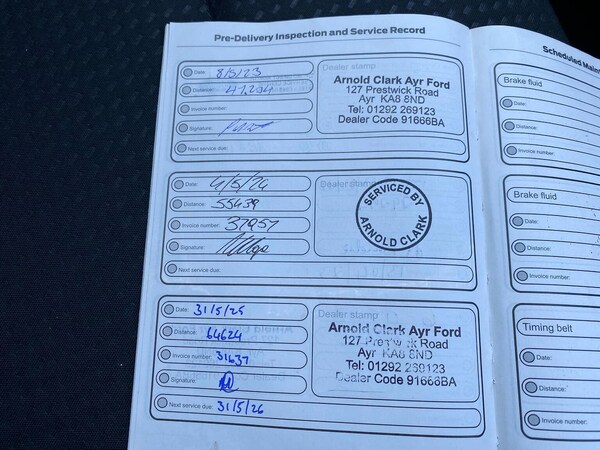 Pre-Delivery Inspection and Service Record
Date: 8/5/23
Distance: 47,204
Invoice number:
Signature:
Next service due:
Dealer stamp
Arnold Clark Ayr Ford
127 Prestwick Road
Ayr KA8 8ND
Tel: 01292 269123
Dealer Code 91666BA
Date: 4/5/24
Distance: 55439
Invoice number: 37957
Signature:
Next service due:
Dealer stamp
SERVICED BY
ARNOLD CLARK
Date: 31/5/25
Distance: 64624
Invoice number: 31637
Signature:
Next service due: 31/5/26
Dealer stamp
Arnold Clark Ayr Ford
127 Prestwick Road
Ayr KA8 8ND
Tel: 01292 269123
Dealer Code 91666BA
Scheduled
Brake fluid
Date:
Distance:
Invoice number:
Brake fluid
Date:
Distance:
Invoice number:
Timing belt
Date:
Distance:
Invoice number: